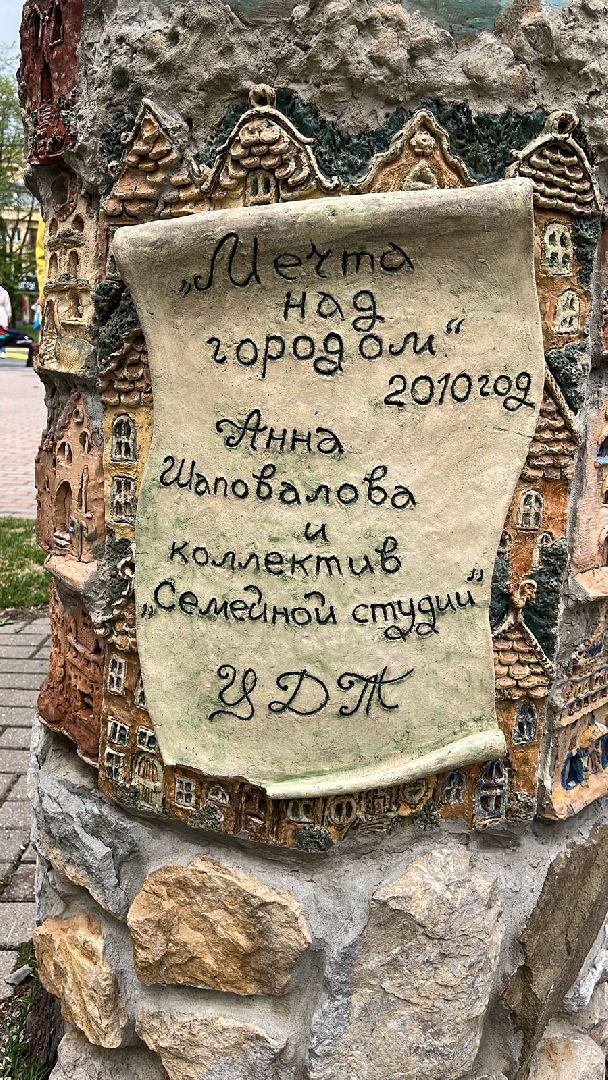 „Мечта
над
городом“
2010год
Анна
Шаповалова
и
коллектив
„Семейной студии"
ЦДТ